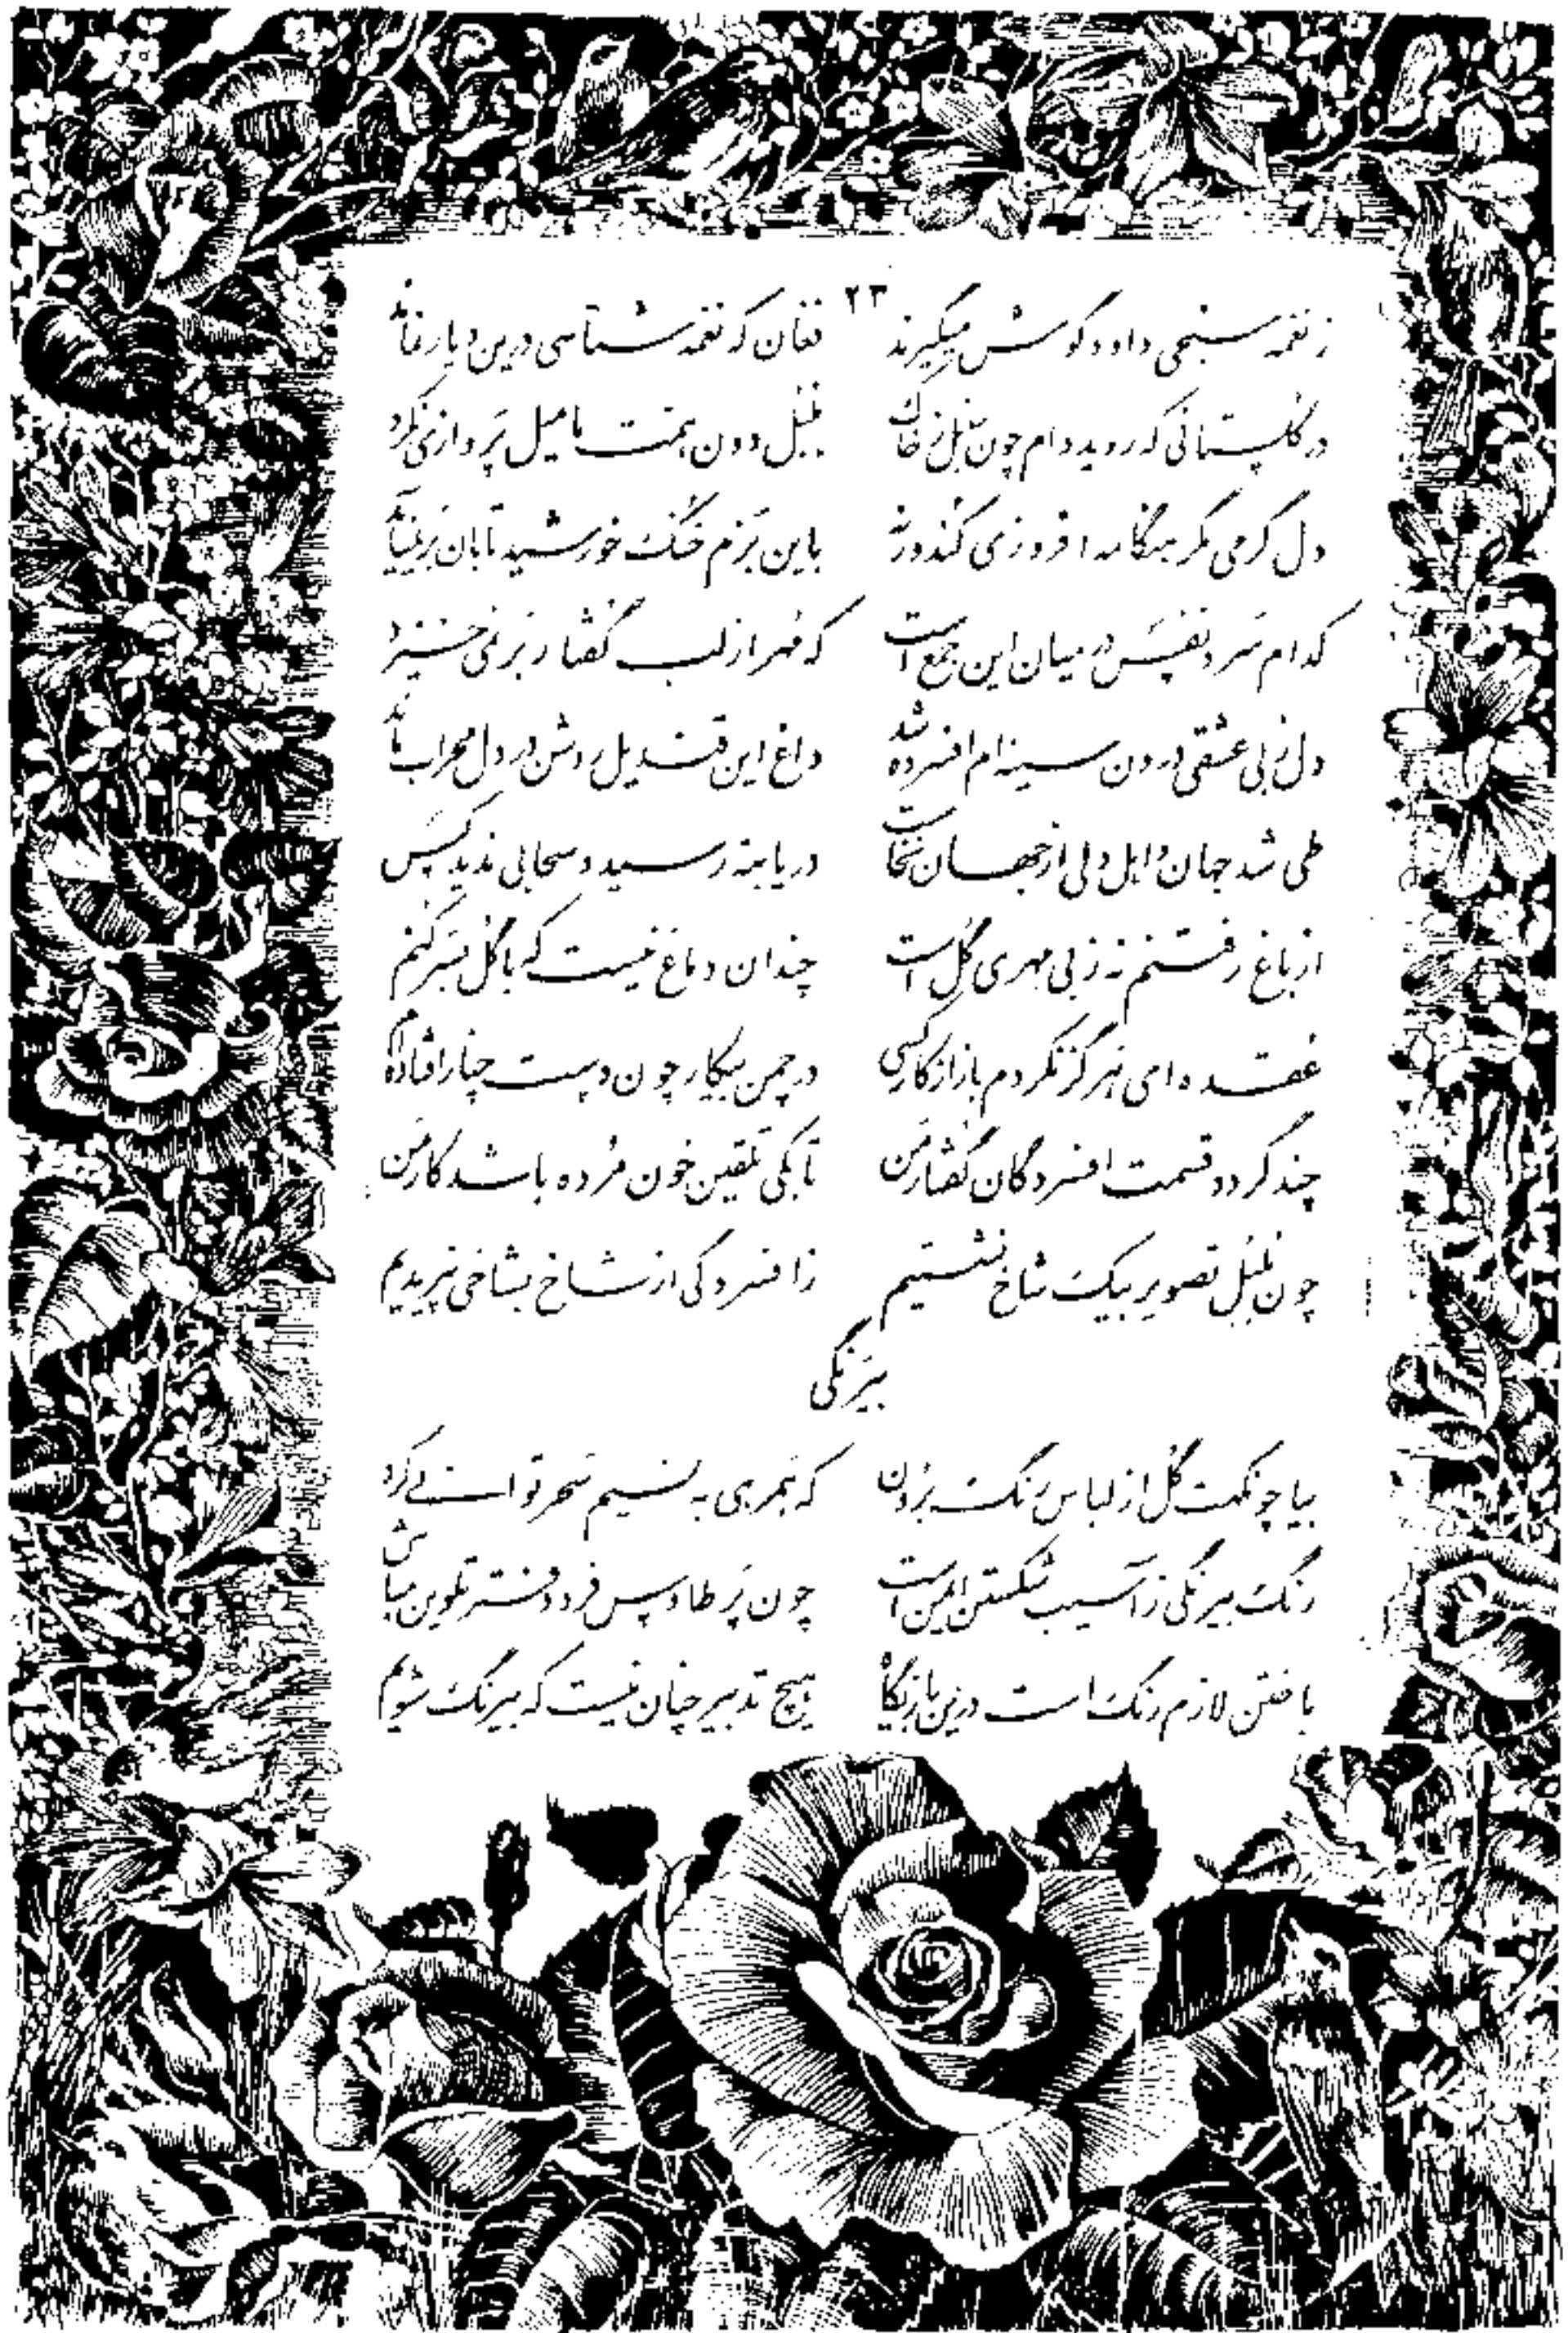 ۲۳
ز نغمه سنجی داود گوش میگیرند فغان که نغمه شناسی درین دیار نماند
در گلستانی که روید دام چون سنبل ز خاک بلبل دون همت ما میل پروازی نکرد
دل گرمی مگر هنگامه افروزی کند ورنه باین بزم خنک خورشید تابان بر نمیآید
کدام سرد نفس در میان این جمع است که مهر از لب گفتار بر نمی خیزد
دل ز بی عشقی درون سینه ام افسرده شد داغ این قندیل روشن در دل محراب ماند
طی شد جهان و اهل دلی از جهان نخاست دریا بته رسید و سحابی ندید کس
از باغ رفتنم نه ز بی مهری گل است چندان دماغ نیست که با گل بسر کنم
عقده ای هرگز نکردم باز از کار کسی در چمن بیکار چون دست چنار افتاده ام
چند گردد قسمت افسردگان گفتار من تا بکی تلقین خون مرده باشد کار من
چون بلبل تصویر بیک شاخ نشستیم ز افسردگی از شاخ بشاخی نپریدیم
بیرنگی
بیا چو نکهت گل از لباس رنگ برون که همرهی به نسیم سحر توانی کرد
رنگ بیرنگی ز آسیب شکستن ایمن است چون پر طاوس فرد دفتر تلوین مباش
باختن لازم رنگ است درین بازیگاه هیچ تدبیر چنان نیست که بیرنگ شویم